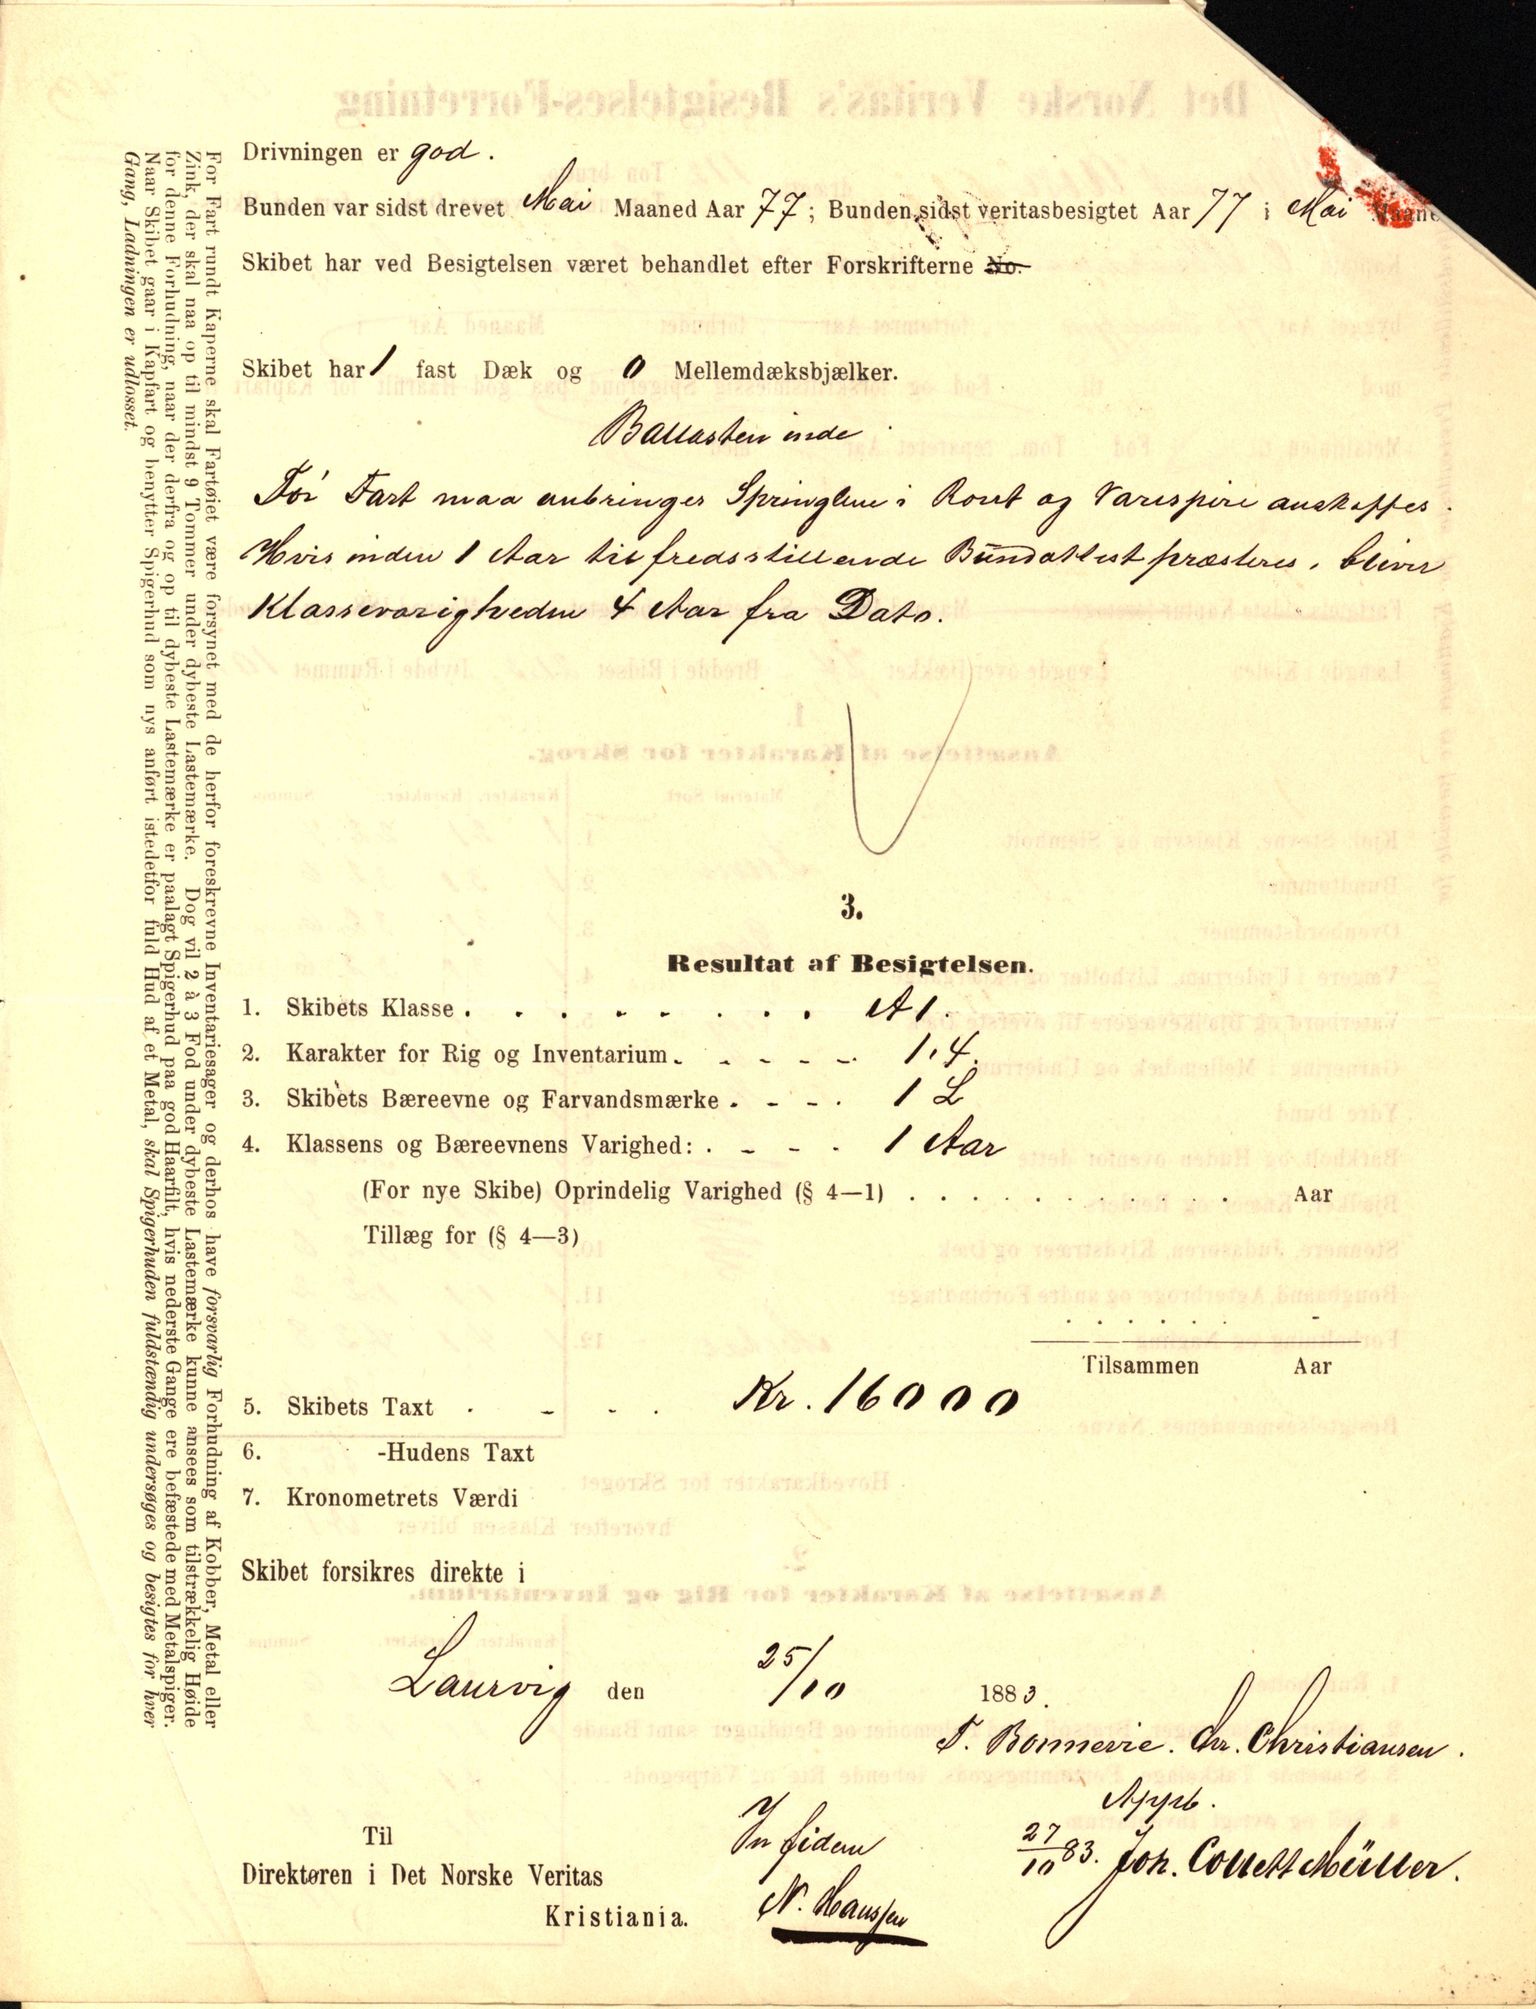 Drivningen er god.
Bunden var sidst drevet Mai Maaned Aar 77; Bunden sidst veritasbesigtet Aar 77 i Mai Maane
Skibet har ved Besigtelsen været behandlet efter Forskrifterne No.
Skibet har 1 fast Dæk og 0 Mellemdæksbjælker.
Ballasten inde
För Fart maa anbringes i Roret og Varespire anskaffes.
Hvis inden 1 Aar tilfredsstillende Bundattest præsteres, bliver
Klassevarigheden 4 Aar fra Dato.
3.
Resultat af Besigtelsen.
1. Skibets Klasse . . . . . . . . A 1.
2. Karakter for Rig og Inventarium . . . . . 1.4.
3. Skibets Bæreevne og Farvandsmærke . . . . 1 L
4. Klassens og Bæreevnens Varighed: . . . . 1 Aar
(For nye Skibe) Oprindelig Varighed (§ 4—1) . . . . . . . . . . . Aar
Tillæg for (§ 4—3)
Tilsammen Aar
5. Skibets Taxt . . . . Kr. 16000
6. -Hudens Taxt
7. Kronometrets Værdi
Skibet forsikres direkte i
Laurvig den 25/10 1883.
T. Bonnevie. Chr. Christiansen.
Appb.
27/10 83. Joh. Collett Müller.
In fidem
N. Hanssen
Til
Direktøren i Det Norske Veritas
Kristiania.
For Fart rundt Kaperne skal Fartøiet være forsynet med de herfor foreskrevne Inventariesager og derhos have forsvarlig Forhudning af Kobber, Metal eller
Zink, der skal naa op til mindst 9 Tommer under dybeste Lastemærke. Dog vil 2 à 3 Fod under dybeste Lastemærke kunne ansees som tilstrækkelig Høide
for denne Forhudning, naar der derfra og op til dybeste Lastemærke er paalagt Spigerhud paa god Haarfilt, hvis nederste Gange ere befæstede med Metalspiger.
Naar Skibet gaar i Kapfart og benytter Spigerhud som nys anført istedetfor fuld Hud af et Metal, skal Spigerhuden fuldstændig undersøges og besigtes for hver
Gang, Ladningen er udlosset.